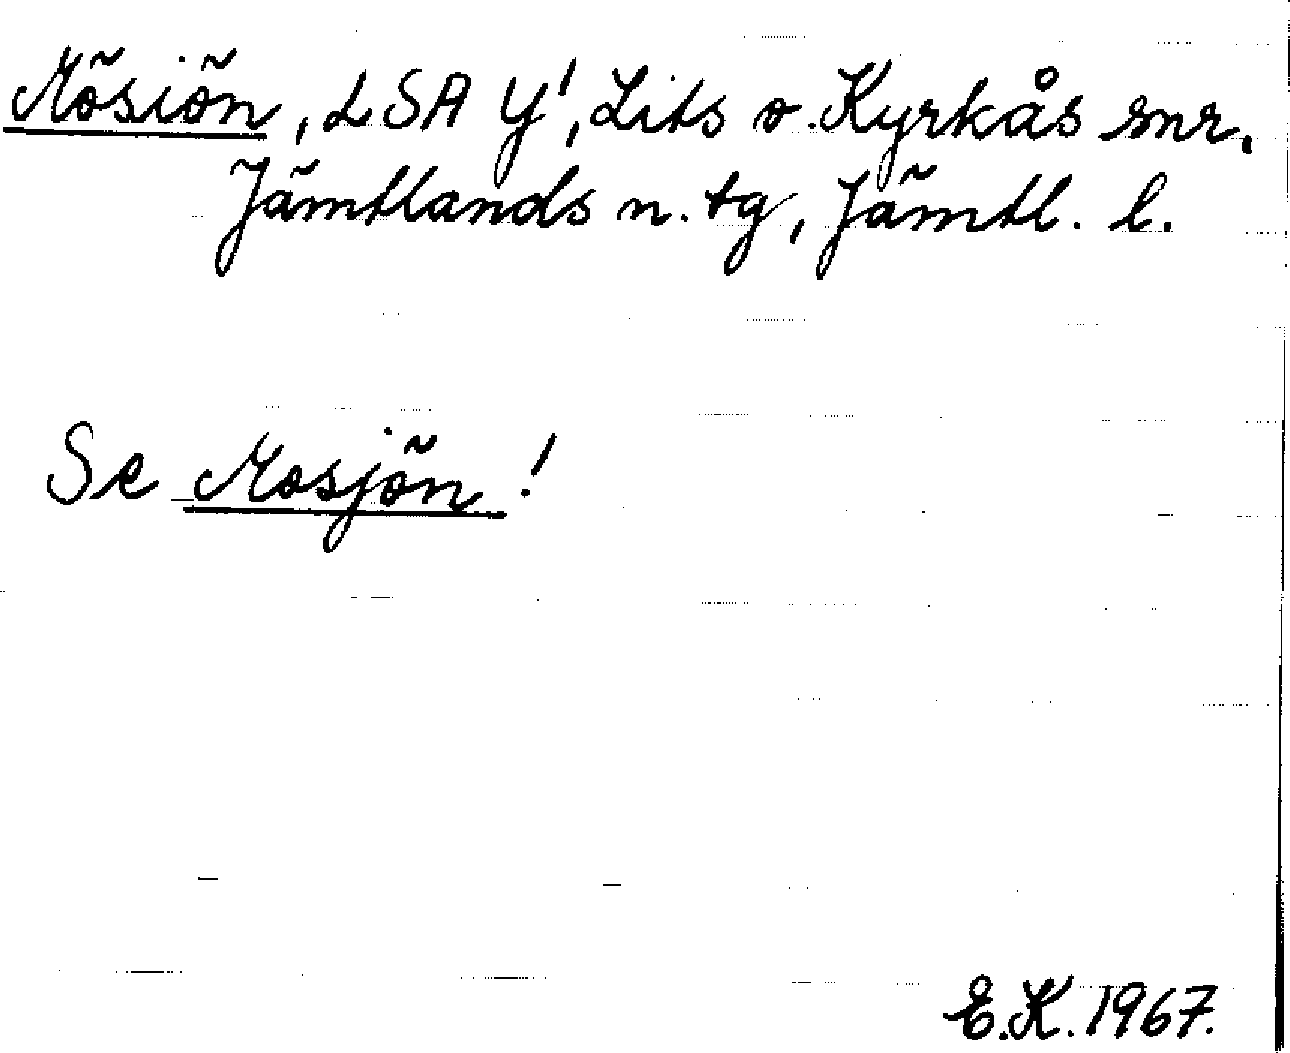 Mösiön, LSA Y¹, Lits o. Kyrkås snr.
Jämtlands n. tg, Jämtl. l.
Se Mosjön!
E.K. 1967.